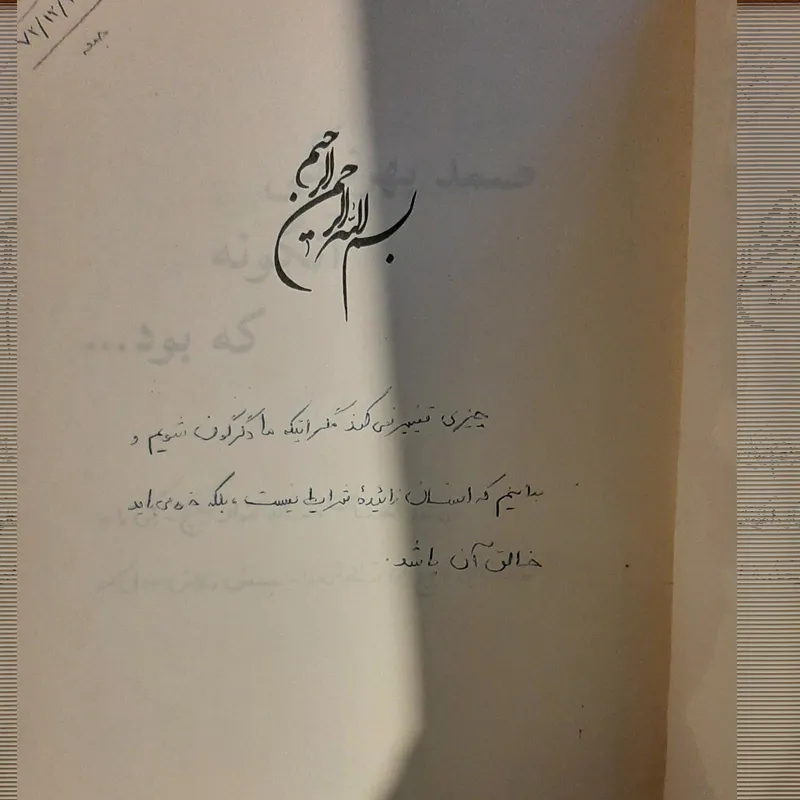 جمعه
بسم الله الرحمن الرحیم
چیزی تغییر نمی کند مگر اینکه ما دگرگون شویم و
بدانیم که انسان زائیدهٔ شرایط نیست، بلکه خود می باید
خالق آن باشد.